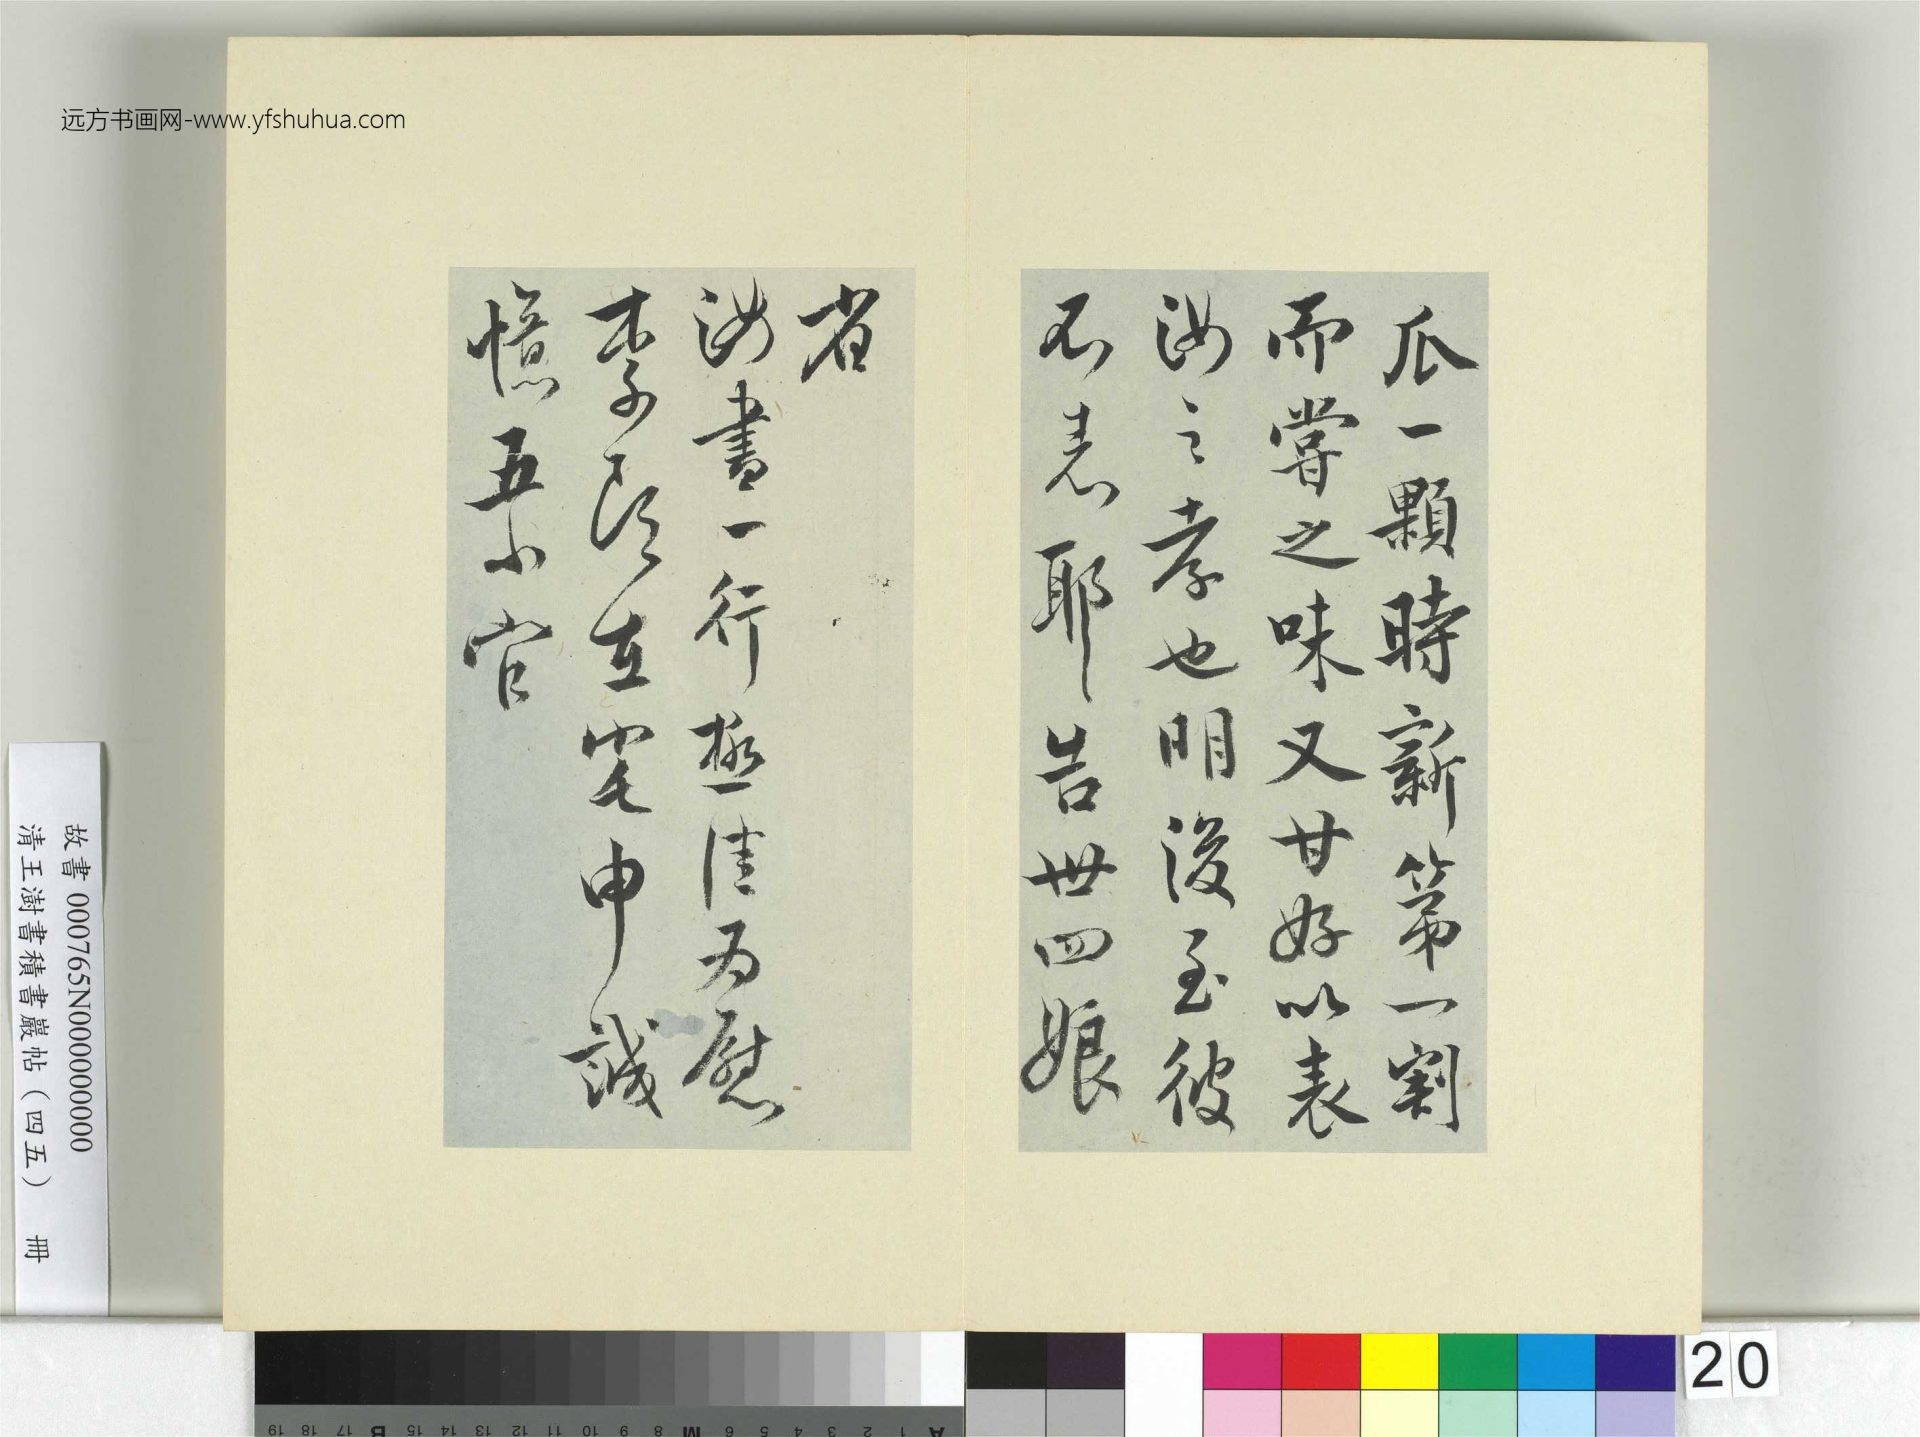 远方书画网-www.yfshuhua.com
瓜一顆時新第一割
而嘗之味又甘好以表
汝之孝也明後至彼
不悉耶耶告卅四娘
省
汝書一行極佳為慰
李
在宅申誠
憶五小官
故書 000765N000000000
清王澍書積書巖帖（四五） 冊
20
A 1 2 3 4 5 6 M 8 9 10 11 12 13 14 15 B 17 18 19